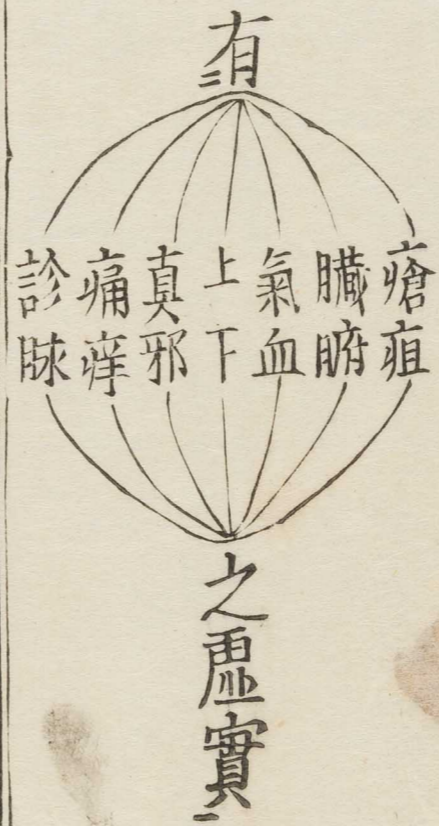 有
瘡疽
臓腑
氣血
上下
真邪
痛痒
診脉
之虛實